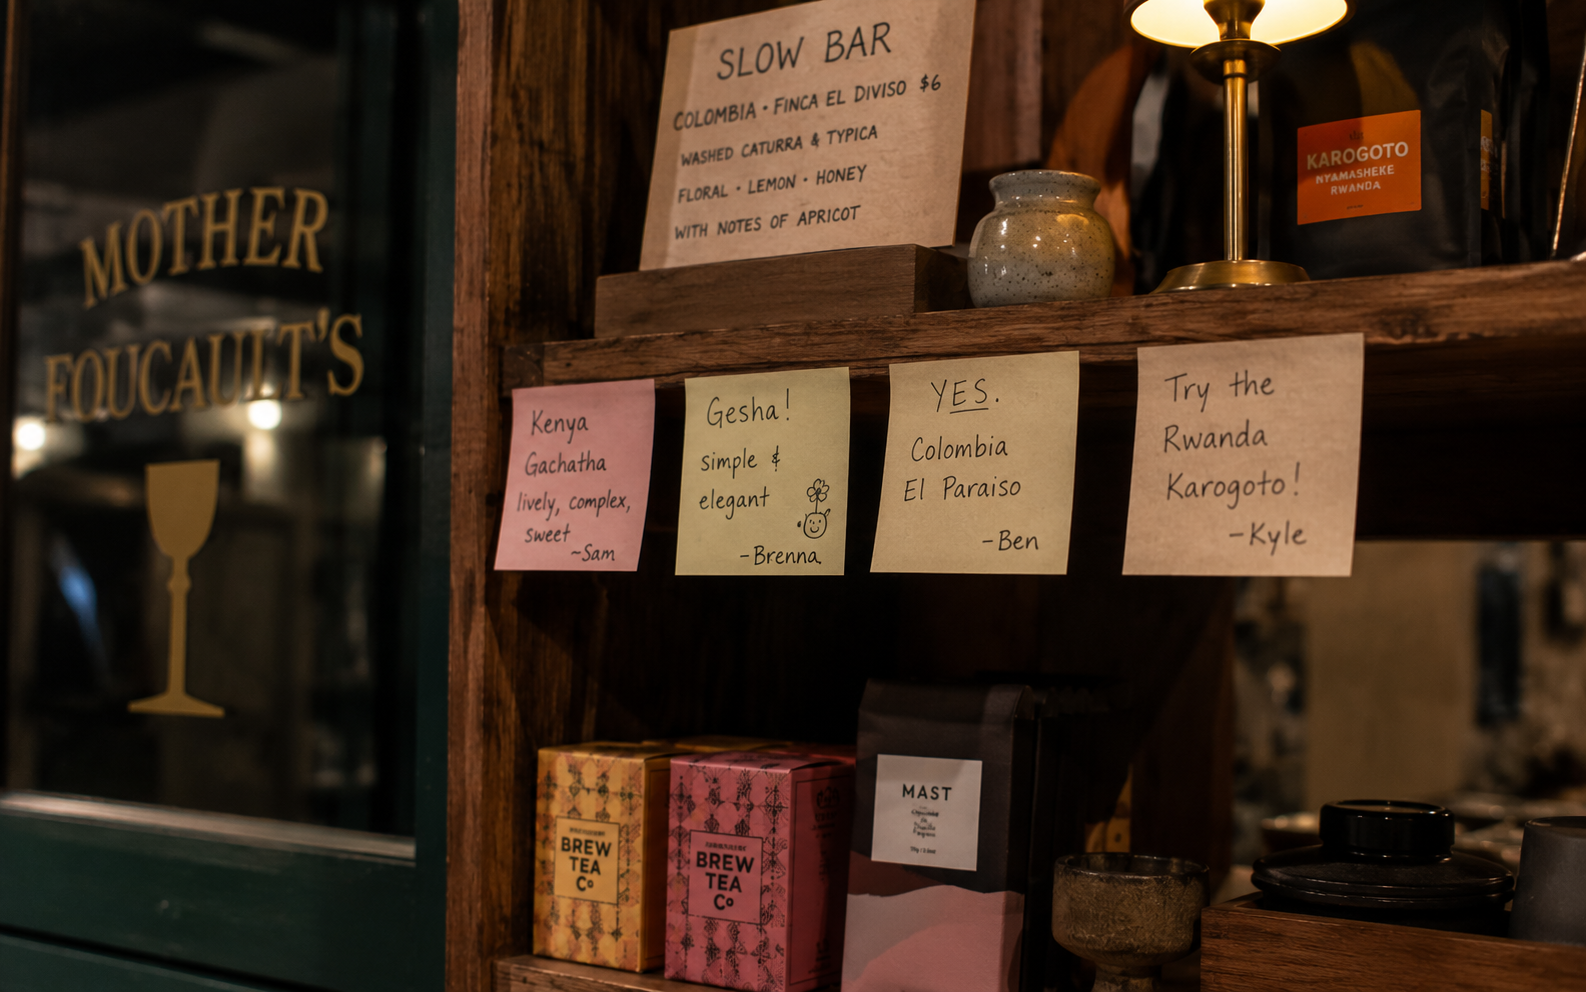 MOTHER
FOUCAULT'S
SLOW BAR
COLOMBIA · FINCA EL DIVISO $6
WASHED CATURRA & TYPICA
FLORAL · LEMON · HONEY
WITH NOTES OF APRICOT
KAROGOTO
NYAMASHEKE
RWANDA
Kenya
Gachatha
lively, complex,
sweet
~Sam
Gesha!
simple &
elegant
-Brenna
YES.
Colombia
El Paraiso
-Ben
Try the
Rwanda
Karogoto!
-Kyle
BREW
TEA
Co
BREW
TEA
Co
MAST